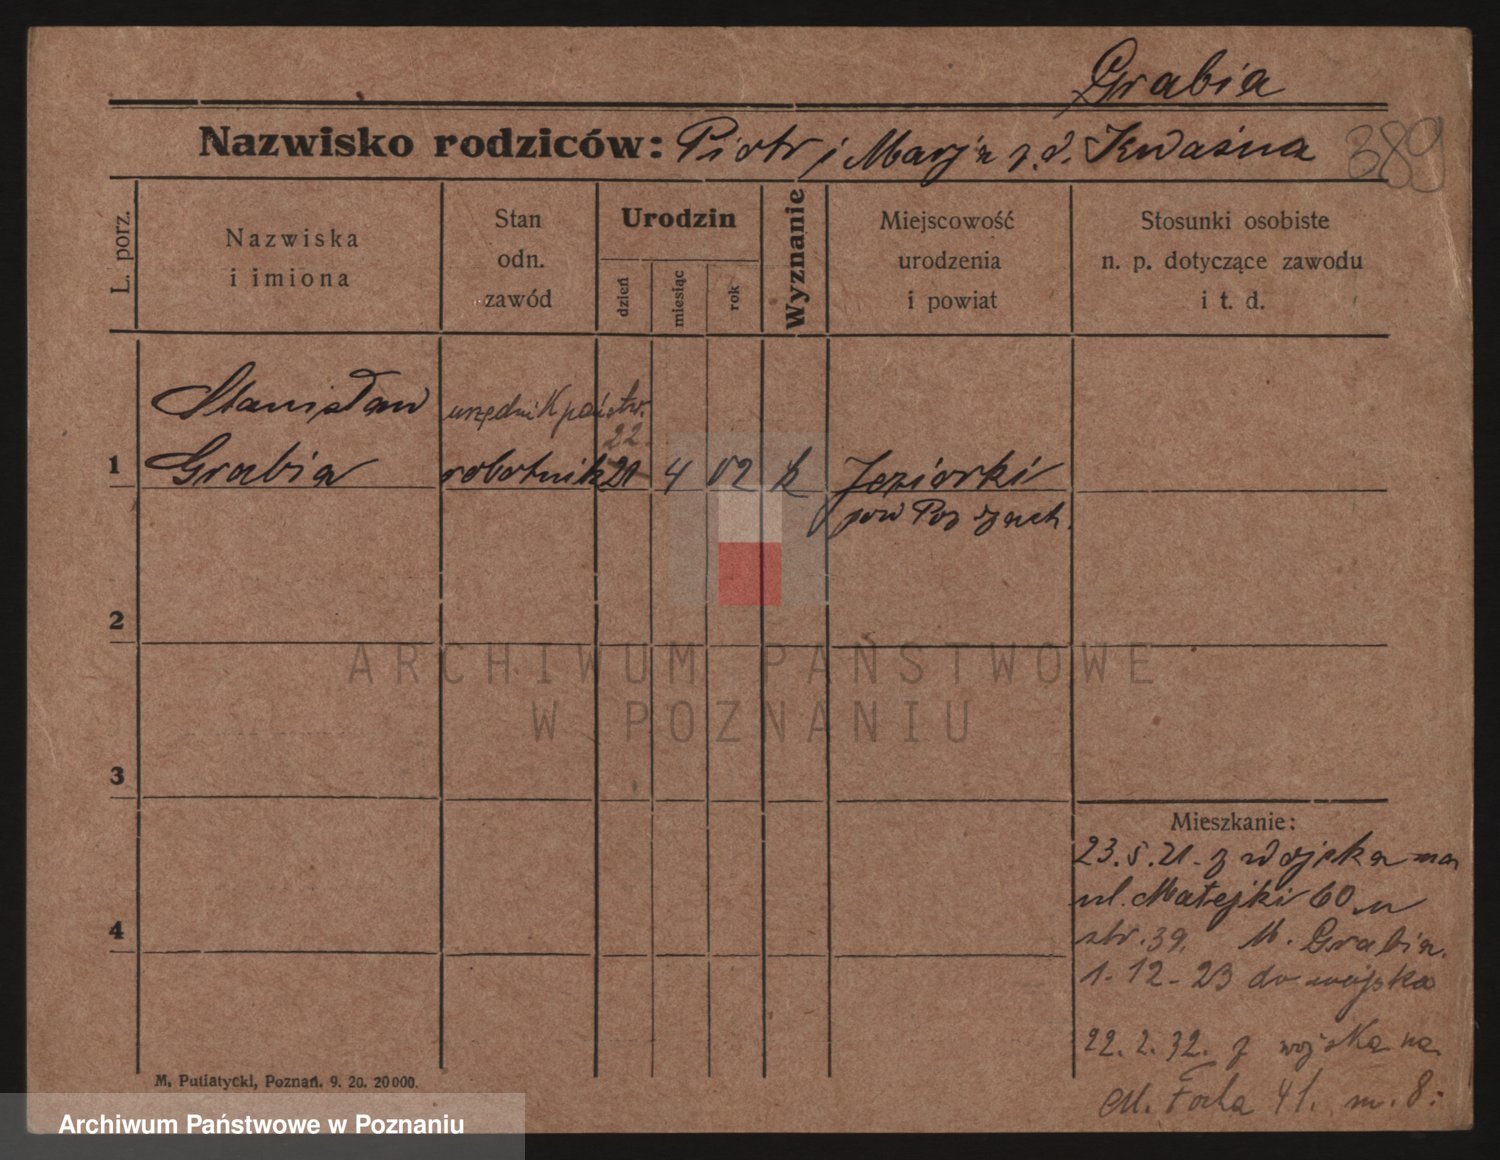 Grabia
Nazwisko rodziców: Piotr i Marja z d. Kwaśna
389
L. porz.
Nazwiska
i imiona
Stan
odn.
zawód
Urodzin
dzień
miesiąc
rok
Wyznanie
Miejscowość
urodzenia
i powiat
Stosunki osobiste
n. p. dotyczące zawodu
i t. d.
Stanisław urzędnik państw.
22.
1 Grabia robotnik 21 4 02 k Jeziorki
pow Poz zach.
2
3
4
ARCHIWUM PAŃSTWOWE
W POZNANIU
Mieszkanie:
23.5.21. z wojska na
ul. Matejki 60 u
str. 39. M. Grabia.
1-12-23 do wojska
22.2.32. z wojska na
ul. Focha 41. m. 8.
M. Putiatycki, Poznań. 9. 20. 20000.
Archiwum Państwowe w Poznaniu